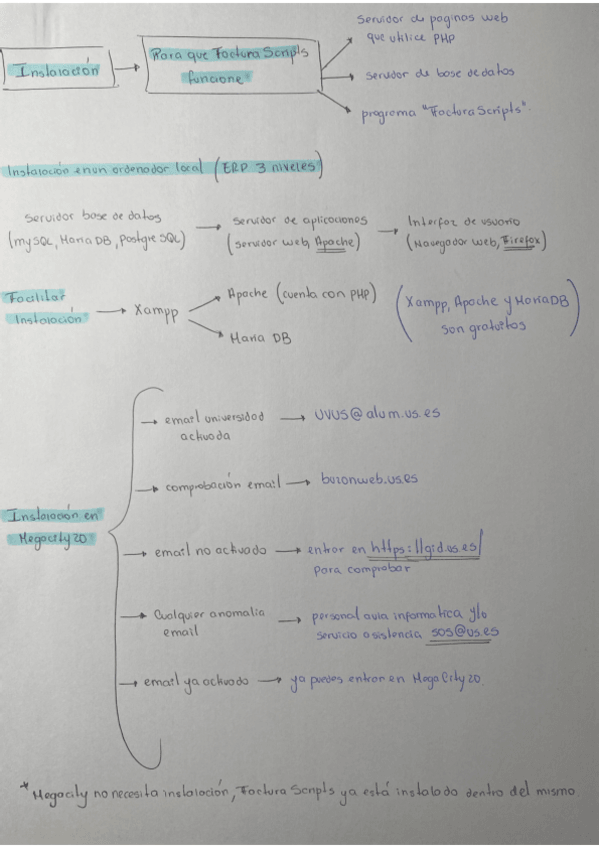 Instalación
Para que FacturaScripts
funcione:
servidor de paginas web
que utilice PHP
servidor de base de datos
programa "FacturaScripts".
Instalación en un ordenador local (ERP 3 niveles)
Servidor base de datos
(mySQL, Maria DB, PostgreSQL)
Servidor de aplicaciones
(servidor web, Apache)
Interfaz de usuario
(Navegador web, Firefox)
Facilitar
instalación
Xampp
Apache (cuenta con PHP)
Maria DB
(Xampp, Apache y MariaDB
son gratuitos)
Instalación en
Megacity20
email universidad
activada
UVUS@alum.us.es
comprobación email
buzonweb.us.es
email no activado
entrar en https://gid.us.es/
para comprobar
Cualquier anomalia
email
personal aula informatica y/o
servicio asistencia sos@us.es
email ya activado
ya puedes entrar en MegaCity20.
*Megacity no necesita instalación, FacturaScripts ya está instalado dentro del mismo